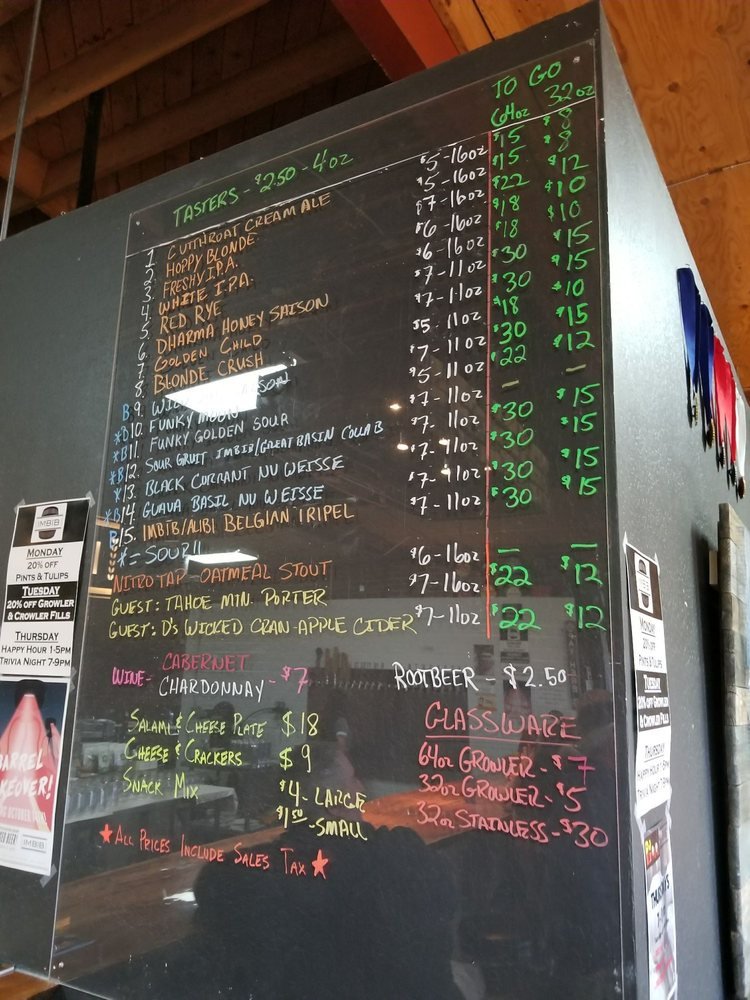 TO GO
64oz 32oz
TASTERS - $2.50 - 4oz
1. CUTTHROAT CREAM ALE $5-16oz $15 $8
2. HOPPY BLONDE $5-16oz $15 $8
3. FRESHY I.P.A. $7-16oz $22 $12
4. WHITE I.P.A. $6-16oz $18 $10
5. RED RYE $6-16oz $18 $10
6. DHARMA HONEY SAISON $7-11oz $30 $15
7. GOLDEN CHILD $7-11oz $30 $15
8. BLONDE CRUSH $5-11oz $18 $10
B 9. $7-11oz $30 $15
*B 10. FUNKY $5-11oz $22 $12
*B 11. FUNKY GOLDEN SOUR $7-11oz – –
*B 12. SOUR GRUIT IMBIB/GREAT BASIN COLLAB $7-11oz $30 $15
*13. BLACK CURRANT NU WEISSE $7-11oz $30 $15
*14. GUAVA BASIL NU WEISSE $7-11oz $30 $15
B 15. IMBIB/ALIBI BELGIAN TRIPEL $7-11oz $30 $15
* = SOUR!!
NITRO TAP OATMEAL STOUT $6-16oz – –
GUEST: TAHOE MTN. PORTER $7-16oz $22 $12
GUEST: D's WICKED CRAN-APPLE CIDER $7-11oz $22 $12
WINE- CABERNET
CHARDONNAY - $7
ROOTBEER - $2.50
SALAMI & CHEESE PLATE $18
CHEESE & CRACKERS $9
SNACK MIX $4 - LARGE
$1.50 - SMALL
GLASSWARE
64oz GROWLER - $7
32oz GROWLER - $5
32oz STAINLESS - $30
★ALL PRICES INCLUDE SALES TAX★
IMBIB
MONDAY
20% OFF
PINTS & TULIPS
TUESDAY
20% OFF GROWLER
& CROWLER FILLS
THURSDAY
HAPPY HOUR 1-5PM
TRIVIA NIGHT 7-9PM
IMBIB
MONDAY
20% OFF
PINTS & TULIPS
TUESDAY
20% OFF GROWLER
& CROWLER FILLS
THURSDAY